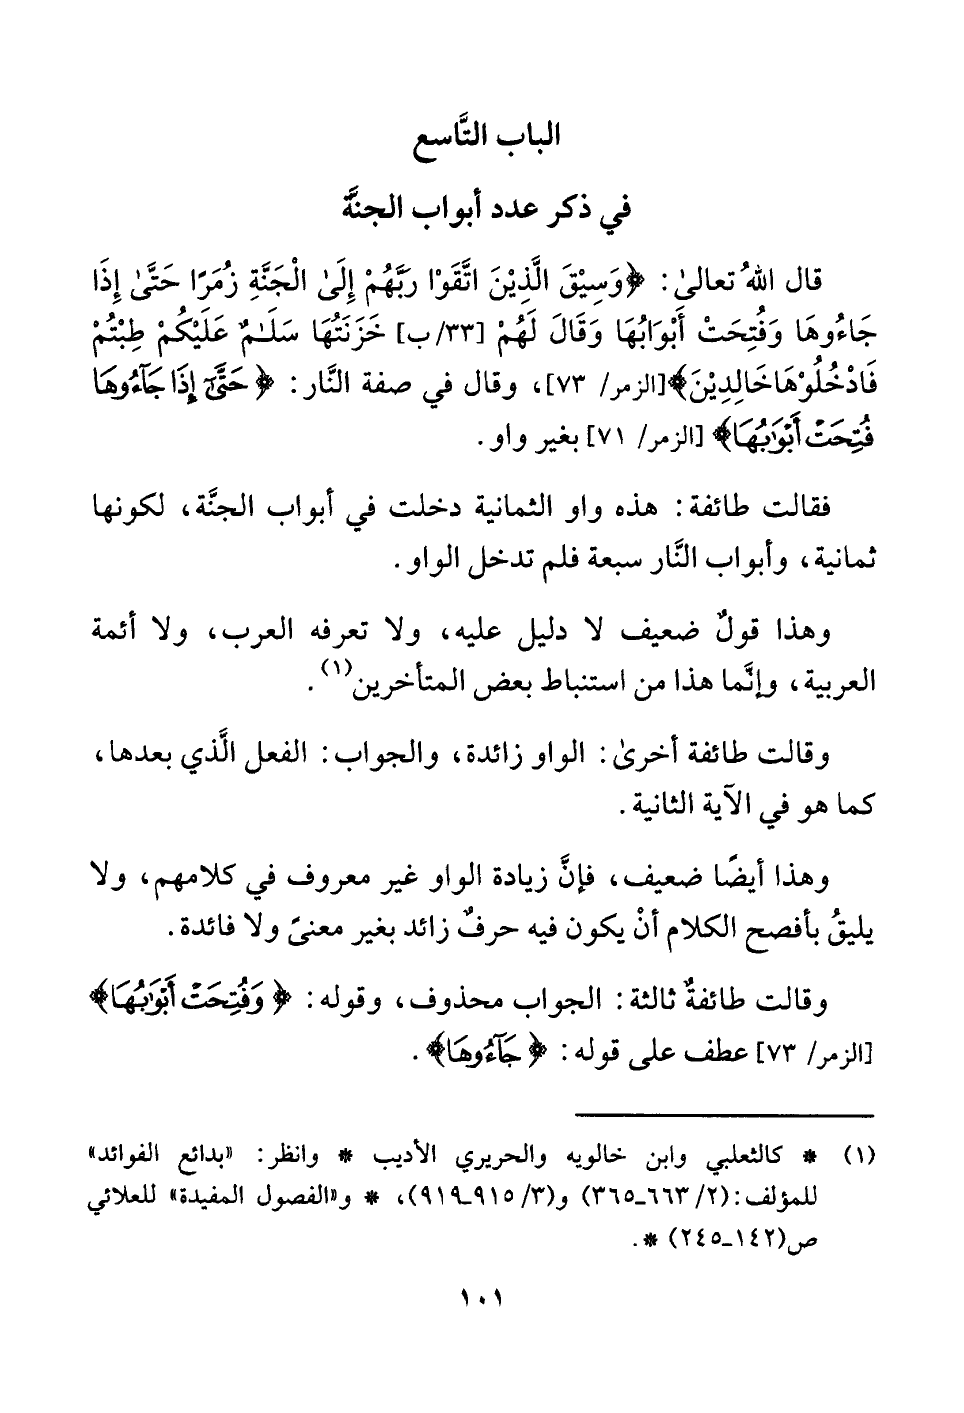 الباب التَّاسع
في ذكر عدد أبواب الجنَّة
قال اللهُ تعالىٰ: ﴿وَسِيْقَ الَّذِيْنَ اتَّقَوْا رَبَّهُمْ إِلَىٰ الْجَنَّةِ زُمَرًا حَتَّىٰ إِذَا
جَاءُوهَا وَفُتِحَتْ أَبْوَابُهَا وَقَالَ لَهُمْ [٣٣/ب] خَزَنَتُهَا سَلَـٰمٌ عَلَيْكُمْ طِبْتُمْ
فَادْخُلُوْهَا خَالِدِيْنَ﴾[الزمر/ ٧٣]، وقال في صفة النَّار: ﴿حَتَّىٰٓ إِذَا جَآءُوهَا
فُتِحَتْ أَبْوَٰبُهَا﴾ [الزمر/ ٧١] بغير واو.
فقالت طائفة: هذه واو الثمانية دخلت في أبواب الجنَّة، لكونها
ثمانية، وأبواب النَّار سبعة فلم تدخل الواو.
وهذا قولٌ ضعيف لا دليل عليه، ولا تعرفه العرب، ولا أئمة
العربية، وإنَّما هذا من استنباط بعض المتأخرين(١).
وقالت طائفة أخرىٰ: الواو زائدة، والجواب: الفعل الَّذي بعدها،
كما هو في الآية الثانية.
وهذا أيضًا ضعيف، فإنَّ زيادة الواو غير معروف في كلامهم، ولا
يليقُ بأفصح الكلام أنْ يكون فيه حرفٌ زائد بغير معنىً ولا فائدة.
وقالت طائفةٌ ثالثة: الجواب محذوف، وقوله: ﴿وَفُتِحَتْ أَبْوَٰبُهَا﴾
[الزمر/ ٧٣] عطف على قوله: ﴿جَآءُوهَا﴾.
(١) * كالثعلبي وابن خالويه والحريري الأديب * وانظر: «بدائع الفوائد»
للمؤلف: (٢/ ٦٦٣ـ٣٦٥) و(٣/ ٩١٥ـ٩١٩)، * و«الفصول المفيدة» للعلائي
ص(١٤٢ـ٢٤٥) *.
١٠١